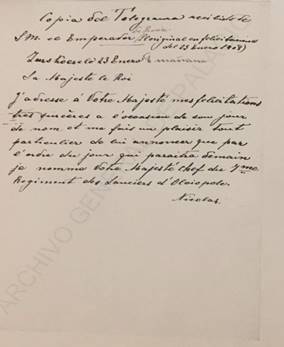 Copia del Telegrama recibido de
S.M. el Emperador de Rusia (Original en felicitaciones
del 23 Enero 1908)
Zarskoeselo 23 Enero mañana
Sa Majesté le Roi
J'adresse à Votre Majesté mes félicitations
très sincères a l'occasion de son jour
de nom, et me fais un plaisir tout
particulier de lui annoncer que par
l'ordre du jour qui paraitra demain
je nomme Votre Majesté Chef du 7me
Regiment des Lanciers d'Olviopole.
Nicolas.
ARCHIVO GENERAL PALACIO